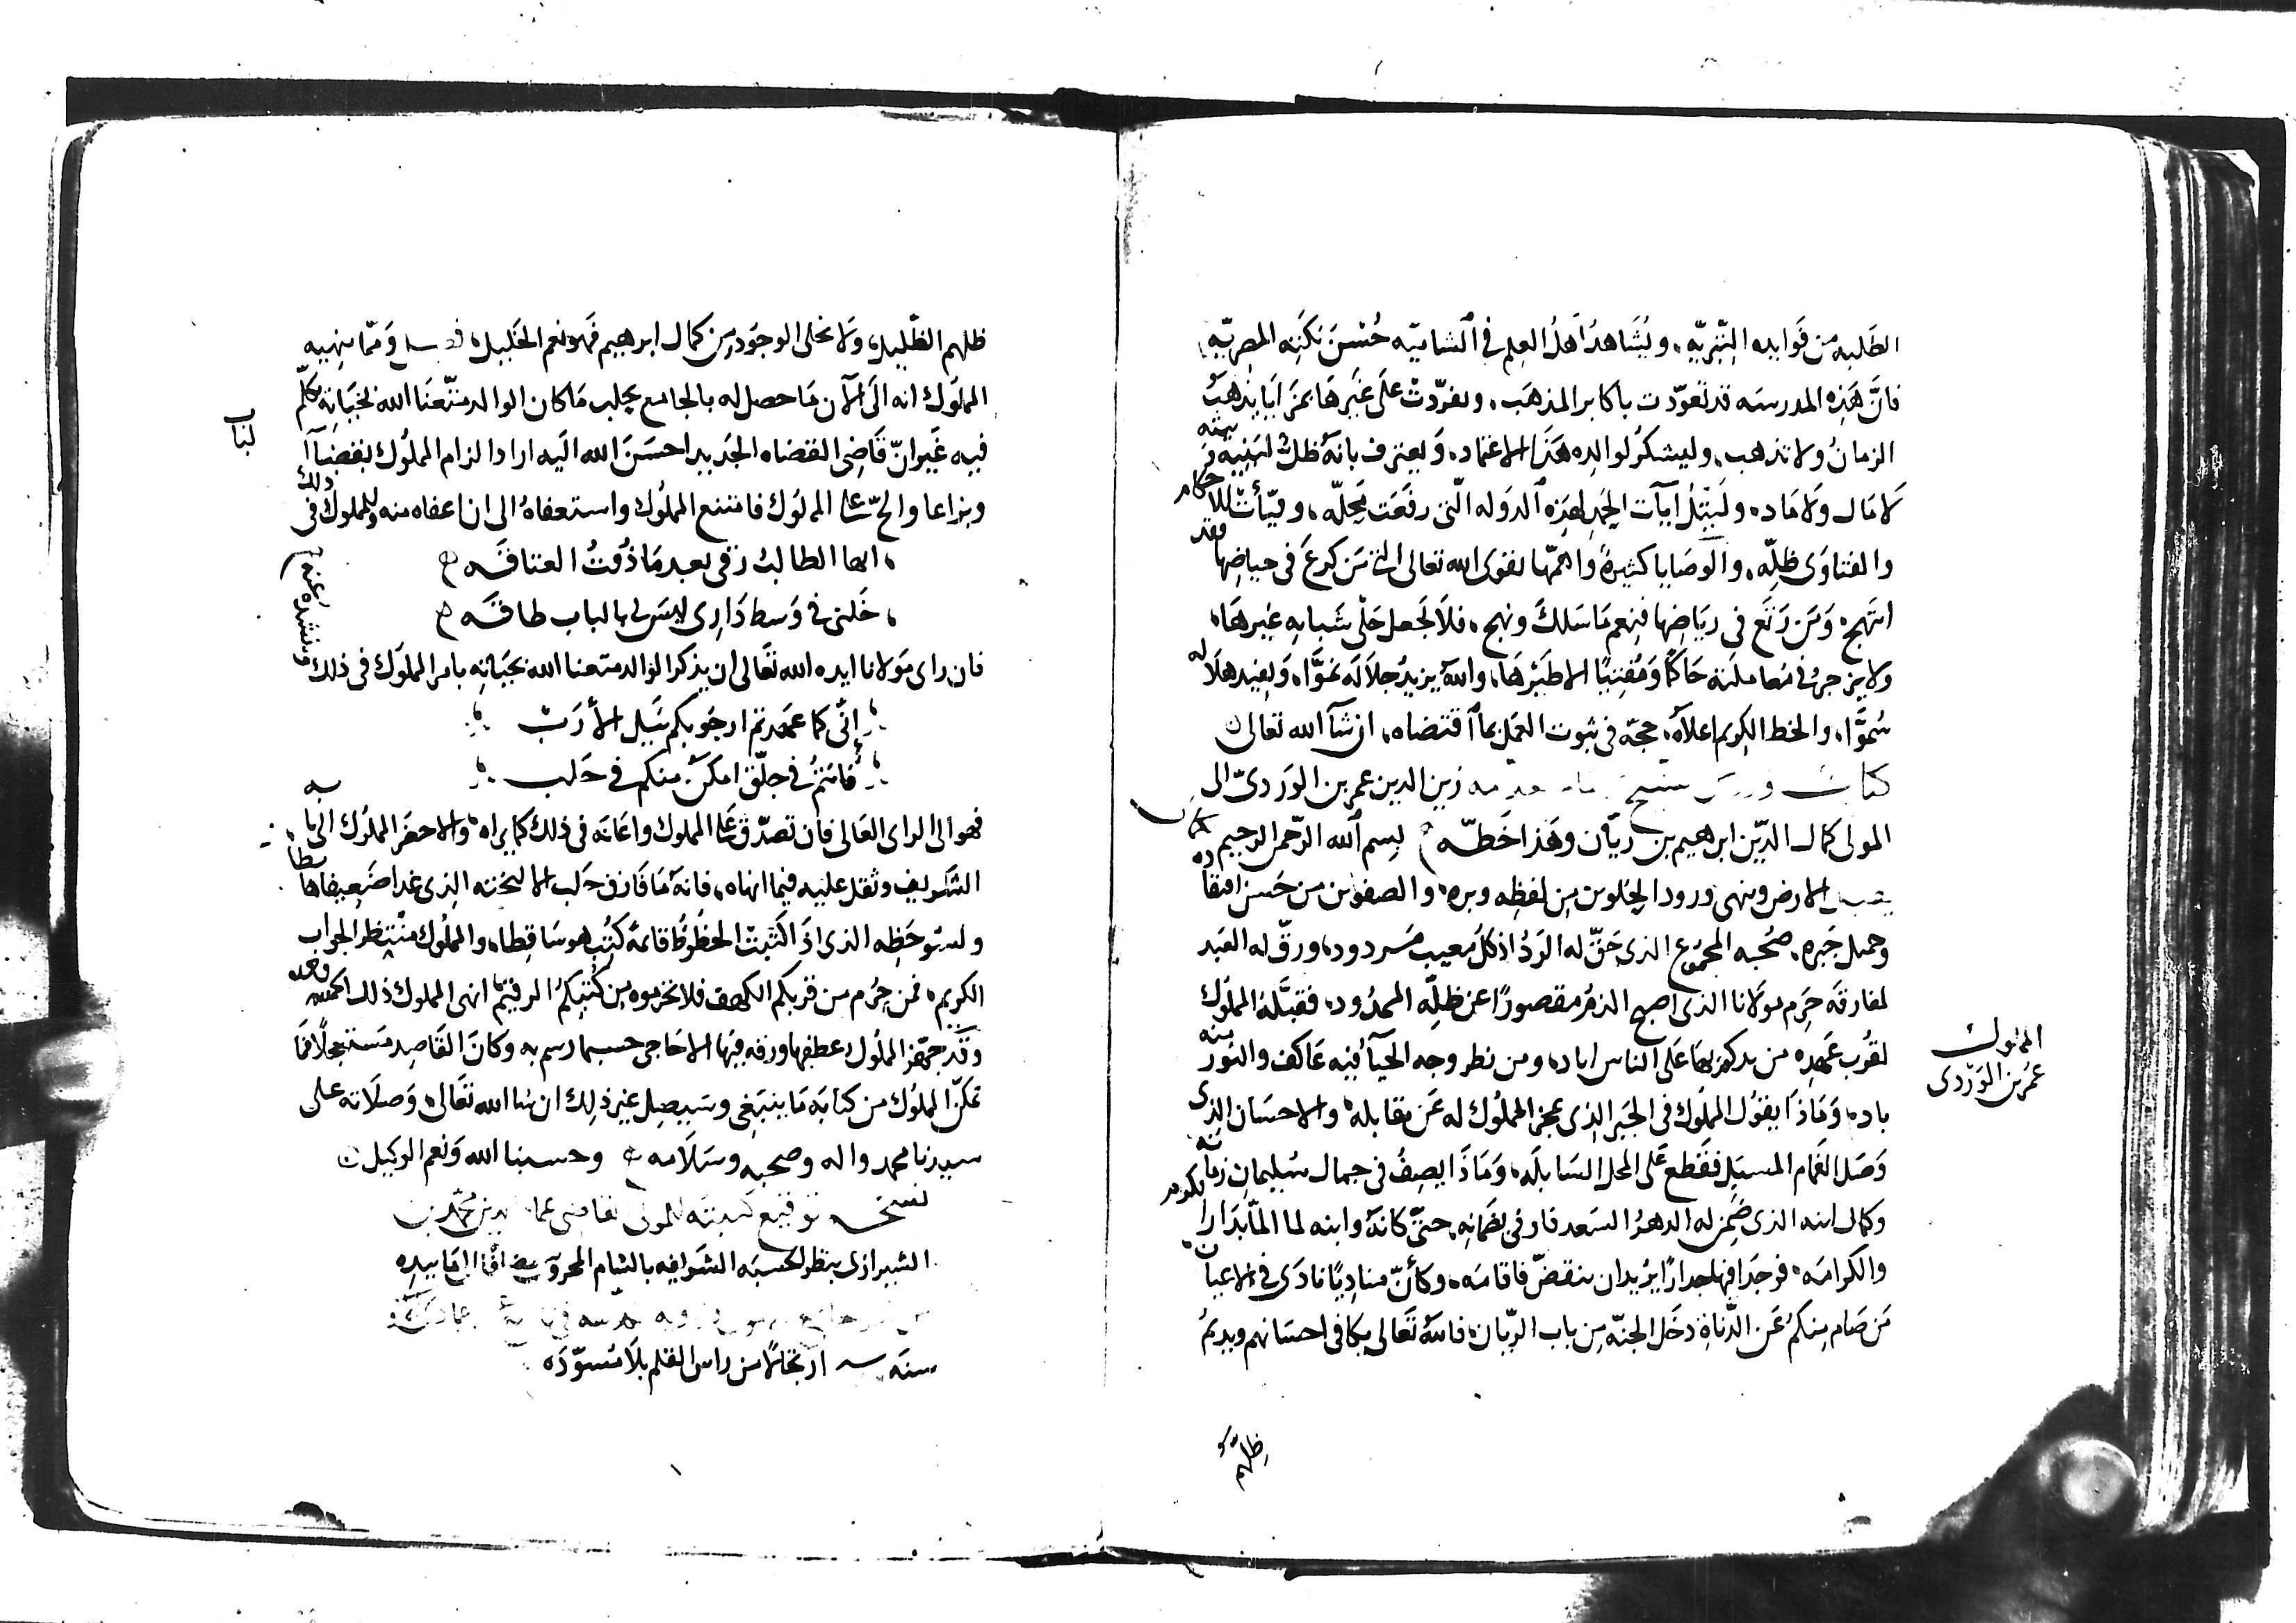 الطلبه من فوايده التبريه، ويشاهد اهل العلم فى الشاميه حسن نكته المصريه
فان هذه المدرسه قد تعودت باكابر المذهب، وتفردت على غيرها بمزايا يذهب
الزمان ولا تذهب، وليشكر لوالده هذا الاعتماد، ويعترف بانه ظل
لا مال ولا ماد، وليتل ايات الحمد لهذه الدوله التى رفعت محله، وفيأت للاحكام
والفتاوى ظله، والوصايا كثيرة واهمها تقوى الله تعالى التى من كرع فى حياضها فقد
ابتهج، ومن رتع فى رياضها فنعم ما سلك ونهج، فلا يجعل حلى شبابه غيرها،
ولا يزجر فى معاملته حاكما ومفتيا الا طيرها، والله يزيد جلاله نموا، ويفيد هلاله
سموا، والخط الكريم اعلاه، حجه فى ثبوت العمل بما اقتضاه، ان شآ الله تعالى
كتاب زين الدين عمر بن الوردى الى
المولى كمال الدين ابرهيم بن ريان وهذا خطه بسم الله الرحمن الرحيم
يقبل الارض وينهى ورود الحلو من لفظه وبره، والصفو من حسن افتقاده
وجميل جبره، صحبه المجموع الذى حق له الرد اذ كل معيب مردود، ورق له العبد
لمفارقه حرم مولانا الذى اصبح الدهر مقصورا عن ظله الممدود، فقبله المملوك
لقرب عهده من يد كم بها على الناس اياد، ومن نظر وجه الحيآ فيه عاكف والنور منه
باد، وماذا يقول المملوك فى الجبر الذى عجز المملوك له عن مقابله، والاحسان الذى
وصل الغمام المسبل فقطع على المحل السابله، وماذا يصف فى جمال سليمان زمانه
وكمال ابنه الذى ضمن له الدهر السعد فاوفى بضمانه، حتى كانه وابنه لما المآ بدار الكرم
والكرامه، فوجدا فيها جدارا يريد ان ينقض فاقامه، وكأن مناديا نادى فى الاعيان
من صام منكم عن الدناة دخل الجنه من باب الريان، فالله تعالى يكافى احسانهم ويديم
ظلهم
المملوك
عمر بن الوردى
ظلهم الظليل، ولا يخلى الوجود من كمال ابرهيم فهو نعم الخليل، ومما ينهيه
المملوك انه الى الآن ما حصل له بالجامع بحلب ما كان الوالد متعنا الله بحياته كلم
فيه غير ان قاضى القضاه الجديد احسن الله اليه اراد الزام المملوك بقضآ الباب
وبزاعا والح على المملوك فامتنع المملوك واستعفاه الى ان اعفاه منه وللمملوك فى ذلك
ايها الطالب رقى بعد ما ذقت العتاقه
خلنى فى وسط دارى ليس لى بالباب طاقه
فان راى مولانا ايده الله تعالى ان يذكر الوالد متعنا الله بحياته بامر المملوك فى ذلك وينشده عنه
انى كما عهدتم ارجو بكم نيل الأرب
فانتم فى جلق امكن منكم فى حلب
فهو الى الراى العالى فان تصدق على المملوك واعانه فى ذلك كما يراه، والا حضر المملوك الى بابه
الشريف وثقل عليه فيما انهاه، فانه ما فارق حلب الا لبخته الذى غدا ضعيفا هابطا
ولسو حظه الذى اذا كتبت الحظوظ قائمة كتب هو ساقطا، والمملوك منتظر الجواب
الكريم، فمن حرم من قربكم الكهف فلا تحرموه من كتبكم الرقيم انهى المملوك ذلك
وقد جهز المملوك عطفها ورقه فيها الاحاجى حسبما رسم به وكان القاصد مستعجلا فما
تمكن المملوك من كتابة ما ينبغى وسيصل غير ذلك ان شا الله تعالى، وصلاته على
سيدنا محمد واله وصحبه وسلامه وحسبنا الله ونعم الوكيل
نسخه توقيع كتبته للمولى القاضى عماد الدين محمد بن
الشيرازى بنظر الحسبه الشريفه بالشام المحروس مضافا الى ما بيده
سنه ارتجالا من راس القلم بلا مسوده